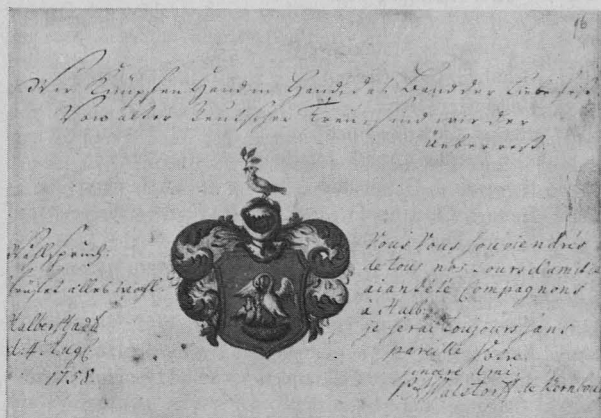 16
Wir Knüpfen Hand in Hand das Band der Liebe fest.
Von alter Teutscher Treu sind wir der
Ueberrest.
Wahlspruch:
alles wohl
Halberstadt
d. 4 Aug.
1758
Vous Vous souviendrés
de tous nos tours d'amitie
aiant été Compagnons
à Halb.
je serai toujours sans
pareille Votre
sincere Ami
de Bernbourg